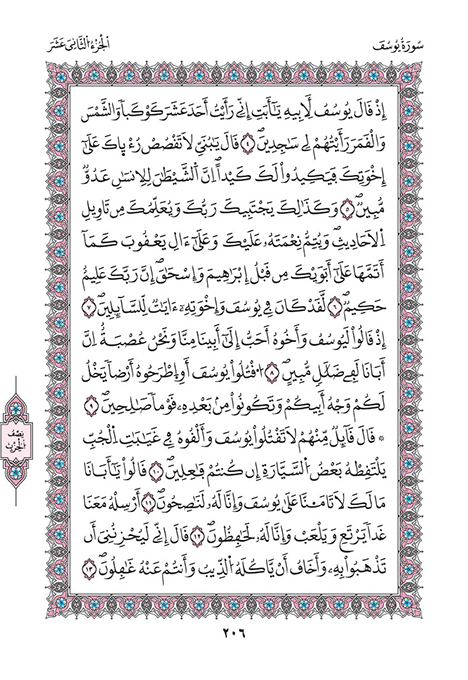 سُورَةُ يُوسُفَ
اَلْجُزْءُ الثَّانِيَ عَشَرَ
إِذْ قَالَ يُوسُفُ لِأَبِيهِ يَٰٓأَبَتِ إِنِّے رَأَيْتُ أَحَدَ عَشَرَ كَوْكَباٗ وَالشَّمْسَ
وَالْقَمَرَ رَأَيْتُهُمْ لِے سَٰجِدِينَۖ ٤ قَالَ يَٰبُنَيِّ لَا تَقْصُصْ رُءْيٰاكَ عَلَىٰٓ
إِخْوَتِكَ فَيَكِيدُواْ لَكَ كَيْداًۖ اِنَّ اَلشَّيْطَٰنَ لِلِانسَٰنِ عَدُوّٞ
مُّبِينٞۖ ٥ وَكَذَٰلِكَ يَجْتَبِيكَ رَبُّكَ وَيُعَلِّمُكَ مِن تَاوِيلِ
اِلَاحَادِيثِۖ وَيُتِمُّ نِعْمَتَهُۥ عَلَيْكَ وَعَلَىٰٓ ءَالِ يَعْقُوبَ كَمَآ
أَتَمَّهَا عَلَىٰٓ أَبَوَيْكَ مِن قَبْلُ إِبْرَٰهِيمَ وَإِسْحَٰقَۖ إِنَّ رَبَّكَ عَلِيمٌ
حَكِيمٞۖ ٦ لَّقَدْ كَانَ فِے يُوسُفَ وَإِخْوَتِهِۦٓ ءَايَٰتٞ لِّلسَّآئِلِينَۖ ٧
إِذْ قَالُواْ لَيُوسُفُ وَأَخُوهُ أَحَبُّ إِلَىٰٓ أَبِينَا مِنَّا وَنَحْنُ عُصْبَةٌۖ اِنَّ
أَبَانَا لَفِے ضَلَٰلٖ مُّبِينٍۖ ٨ اُ۟قْتُلُواْ يُوسُفَ أَوِ اِطْرَحُوهُ أَرْضاٗ يَخْلُ
لَكُمْ وَجْهُ أَبِيكُمْ وَتَكُونُواْ مِنۢ بَعْدِهِۦ قَوْماٗ صَٰلِحِينَۖ ٩
۞ قَالَ قَآئِلٞ مِّنْهُمْ لَا تَقْتُلُواْ يُوسُفَ وَأَلْقُوهُ فِے غَيَٰبَٰتِ اِلْجُبِّ
يَلْتَقِطْهُ بَعْضُ اُ۬لسَّيَّارَةِ إِن كُنتُمْ فَٰعِلِينَۖ ١٠ قَالُواْ يَٰٓأَبَانَا
مَا لَكَ لَا تَامَ۬نَّا عَلَىٰ يُوسُفَ وَإِنَّا لَهُۥ لَنَٰصِحُونَۖ ١١ أَرْسِلْهُ مَعَنَا
غَداٗ يَرْتَعِ وَيَلْعَبْ وَإِنَّا لَهُۥ لَحَٰفِظُونَۖ ١٢ قَالَ إِنِّے لَيُحْزِنُنِيَ أَن
تَذْهَبُواْ بِهِۦ وَأَخَافُ أَنْ يَّاكُلَهُ اُ۬لذِّيبُ وَأَنتُمْ عَنْهُ غَٰفِلُونَۖ ١٣
نِصْف
اَلْحِزْب
٢٠٦